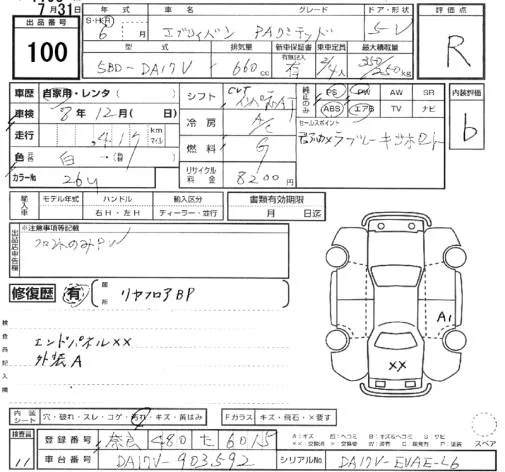 7月31日
出品番号 100
年式 車名 グレード ドア・形状 評価点
S・H・R 6年 月 エブリィバン PAリミテッド 5-V R
型式 排気量 新車保証書 乗車定員 最大積載量
5BD-DA17V 660cc 有 2/4人 350/250kg
車歴 自家用・レンタ シフト CVT インパネAT 純正品のみ PS PW AW SR 内装評価
車検 8年12月(日) ABS エアB TV ナビ b
走行 .417 km マイル 冷房 A/C セールスポイント
色 白→(替) 燃料 G
カラーNo 26U リサイクル料金 8200円
輸入車 モデル年式 ハンドル 輸入区分 書類有効期限
年 右H・左H ディーラー・並行 月 日迄
出品店申告欄 ※注意事項等記載
フロントのみ
修復歴 有 箇所 リヤフロアBP
検査員記入欄
エンドパネル××
外装A
A1
××
内装シート 穴・破れ・スレ・コゲ・汚れ・キズ・黄ばみ Fガラス キズ・飛石・×要す
検査員 11 登録番号 奈良 480 た 6015 スペア
車台番号 DA17V-903592 シリアルNo DA17V-EVAE-L6